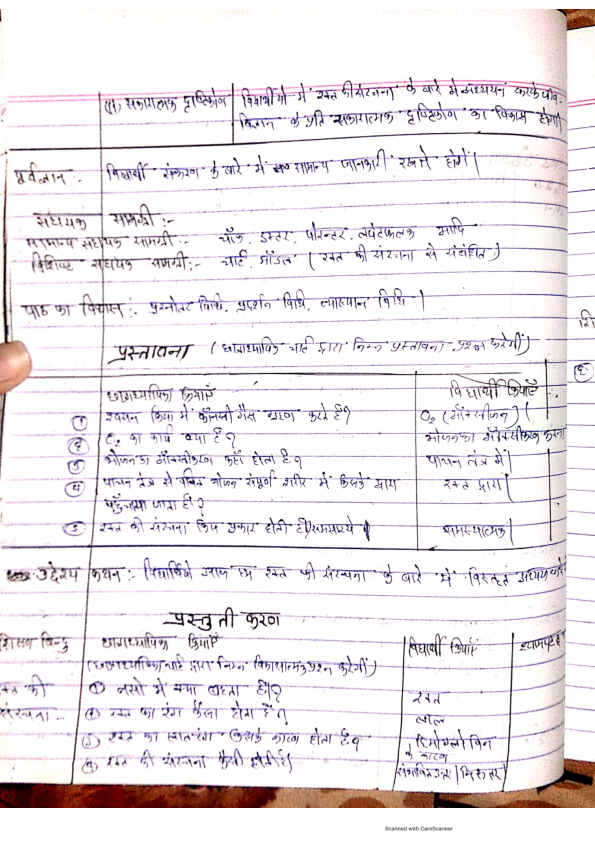 (vi) सकारात्मक दृष्टिकोण | विद्यार्थियों में रक्त की संरचना के बारे में अध्ययन करके जीव-
विज्ञान के प्रति सकारात्मक दृष्टिकोण का विकास होगा।
पूर्वज्ञान - विद्यार्थी संरचना के बारे में सामान्य जानकारी रखते होंगे।
सहायक सामग्री :-
सामान्य सहायक सामग्री :- चॉक, डस्टर, पोइन्टर, लपेटफलक आदि
विशिष्ट सहायक सामग्री:- चार्ट, मॉडल (रक्त की संरचना से संबंधित)
पाठ का विकास :- प्रश्नोत्तर विधि, प्रदर्शन विधि, व्याख्यान विधि।
प्रस्तावना (छात्राध्यापिका चार्ट द्वारा निम्न प्रस्तावना प्रश्न करेगी)
छात्राध्यापिका क्रियाएँ विद्यार्थी क्रियाएँ
① श्वसन क्रिया में कौनसी गैस ग्रहण करते हैं? O₂ (ऑक्सीजन)
② O₂ का कार्य क्या है? भोजन का ऑक्सीकरण करना
③ भोजन का ऑक्सीकरण कहाँ होता है? पाचन तंत्र में।
④ पाचन तंत्र से पचित भोजन संपूर्ण शरीर में किसके द्वारा रक्त द्वारा।
पहुँचाया जाता है?
⑤ रक्त की संरचना किस प्रकार होती है? समस्यात्मक।
उद्देश्य कथन :- विद्यार्थियों आज हम रक्त की संरचना के बारे में विस्तृत अध्ययन करेंगे
प्रस्तुतीकरण
शिक्षण बिन्दु छात्राध्यापिका क्रियाएँ विद्यार्थी क्रियाएँ श्यामपट्ट
(छात्राध्यापिका चार्ट द्वारा निम्न विकासात्मक प्रश्न करेगी)
रक्त की ① नसों में क्या बहता है? रक्त
संरचना - ② रक्त का रंग कैसा होता है? लाल
③ रक्त का लाल रंग किसके कारण होता है? हिमोग्लोबिन
के कारण
④ रक्त की संरचना कैसी होती है? संभावित उत्तर / निरुत्तर
Scanned with CamScanner